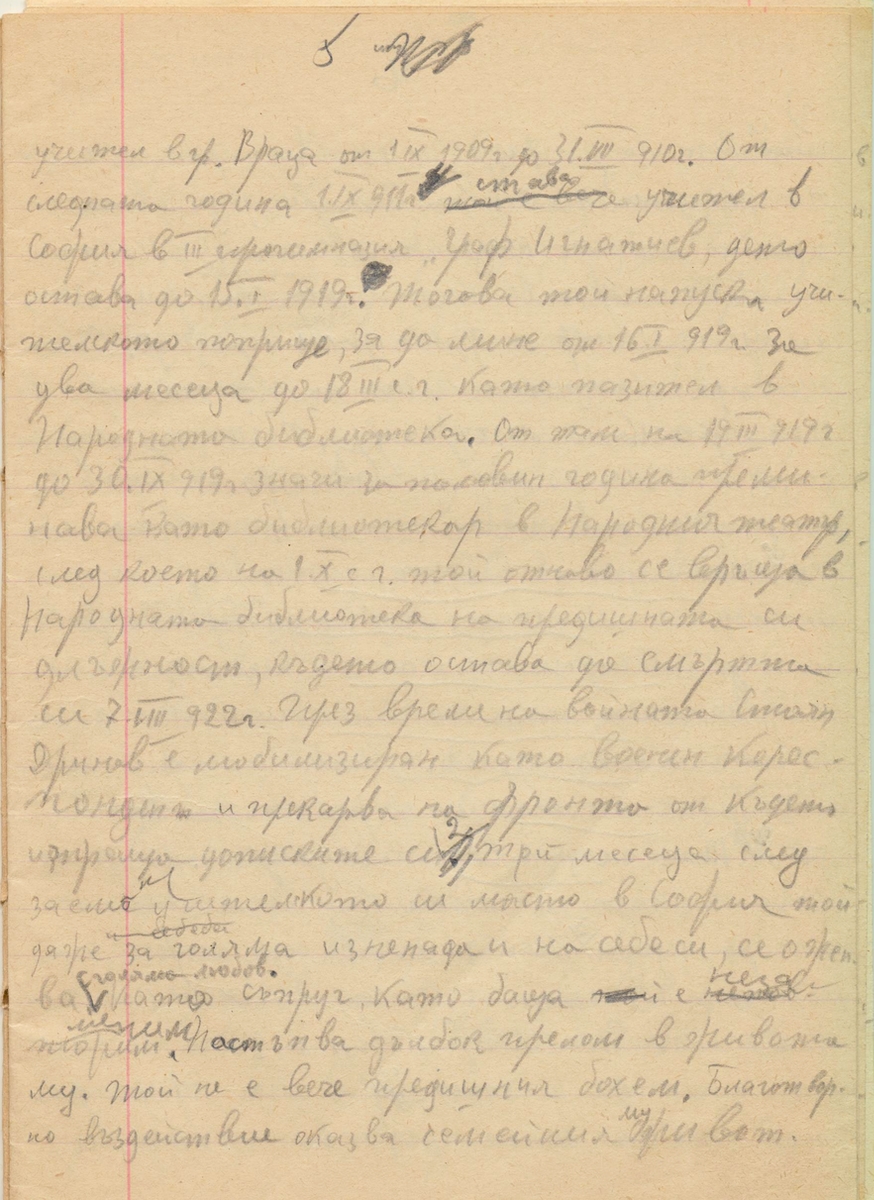 5
учител в гр. Враца от 1 IX 1909г до 31. III 910г. От
следната година 1.IX 911г става учител в
София в III прогимназия „Граф Игнатиев, дето
остава до 15.I 1919г. Тогова той напуска учи-
телското поприще, за да мине от 16 I 919г за
два месеца до 18 III с.г. като пазител в
Народната библиотека. От там на 19 III 919г
до 30.IX 919г значи за половин година преми-
нава като библиотекар в Народния театр,
след което на 1 X с г. той отново се връща в
Народната библиотека на предишната си
длъжност, където остава до смъртта
си 7. III 922г. През време на войната Стоян
Дринов е мобилизиран като военен корес-
пондент и прекарва на фронта от където
изпраща дописките си. 3 три месеца след
заемо учителкото си място в София той
даже за голяма изненада и на себе си, се ожен-
с голяма любов.
ва като съпруг, като баща е неза-
меним. Настъпва дълбок прелом в живота
му. Той не е вече предишния бохем. Благотвор-
но въздействие оказва семейния му живот.